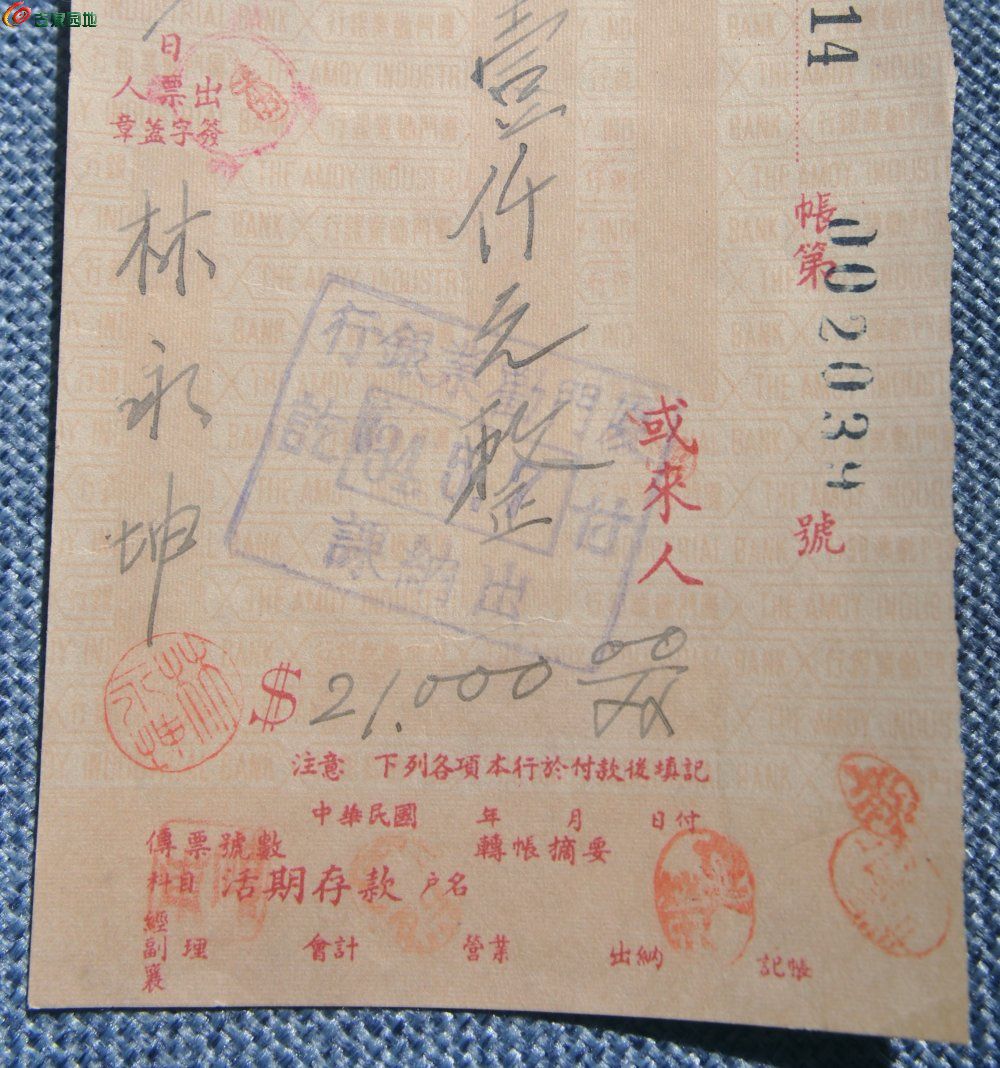 古泉园地
14
帳第 002039 號
或來人
壹仟元整
日
出票人
簽字蓋章
林永坤
林永坤
廈門勸業銀行
付訖
出納課
$21,000 00/XX
注意 下列各項本行於付款後填記
中華民國 年 月 日付
傳票號數 轉帳摘要
科目 活期存款 戶名
經副襄理 會計 營業 出納 記帳
THE AMOY INDUSTRIAL BANK
廈門勸業銀行